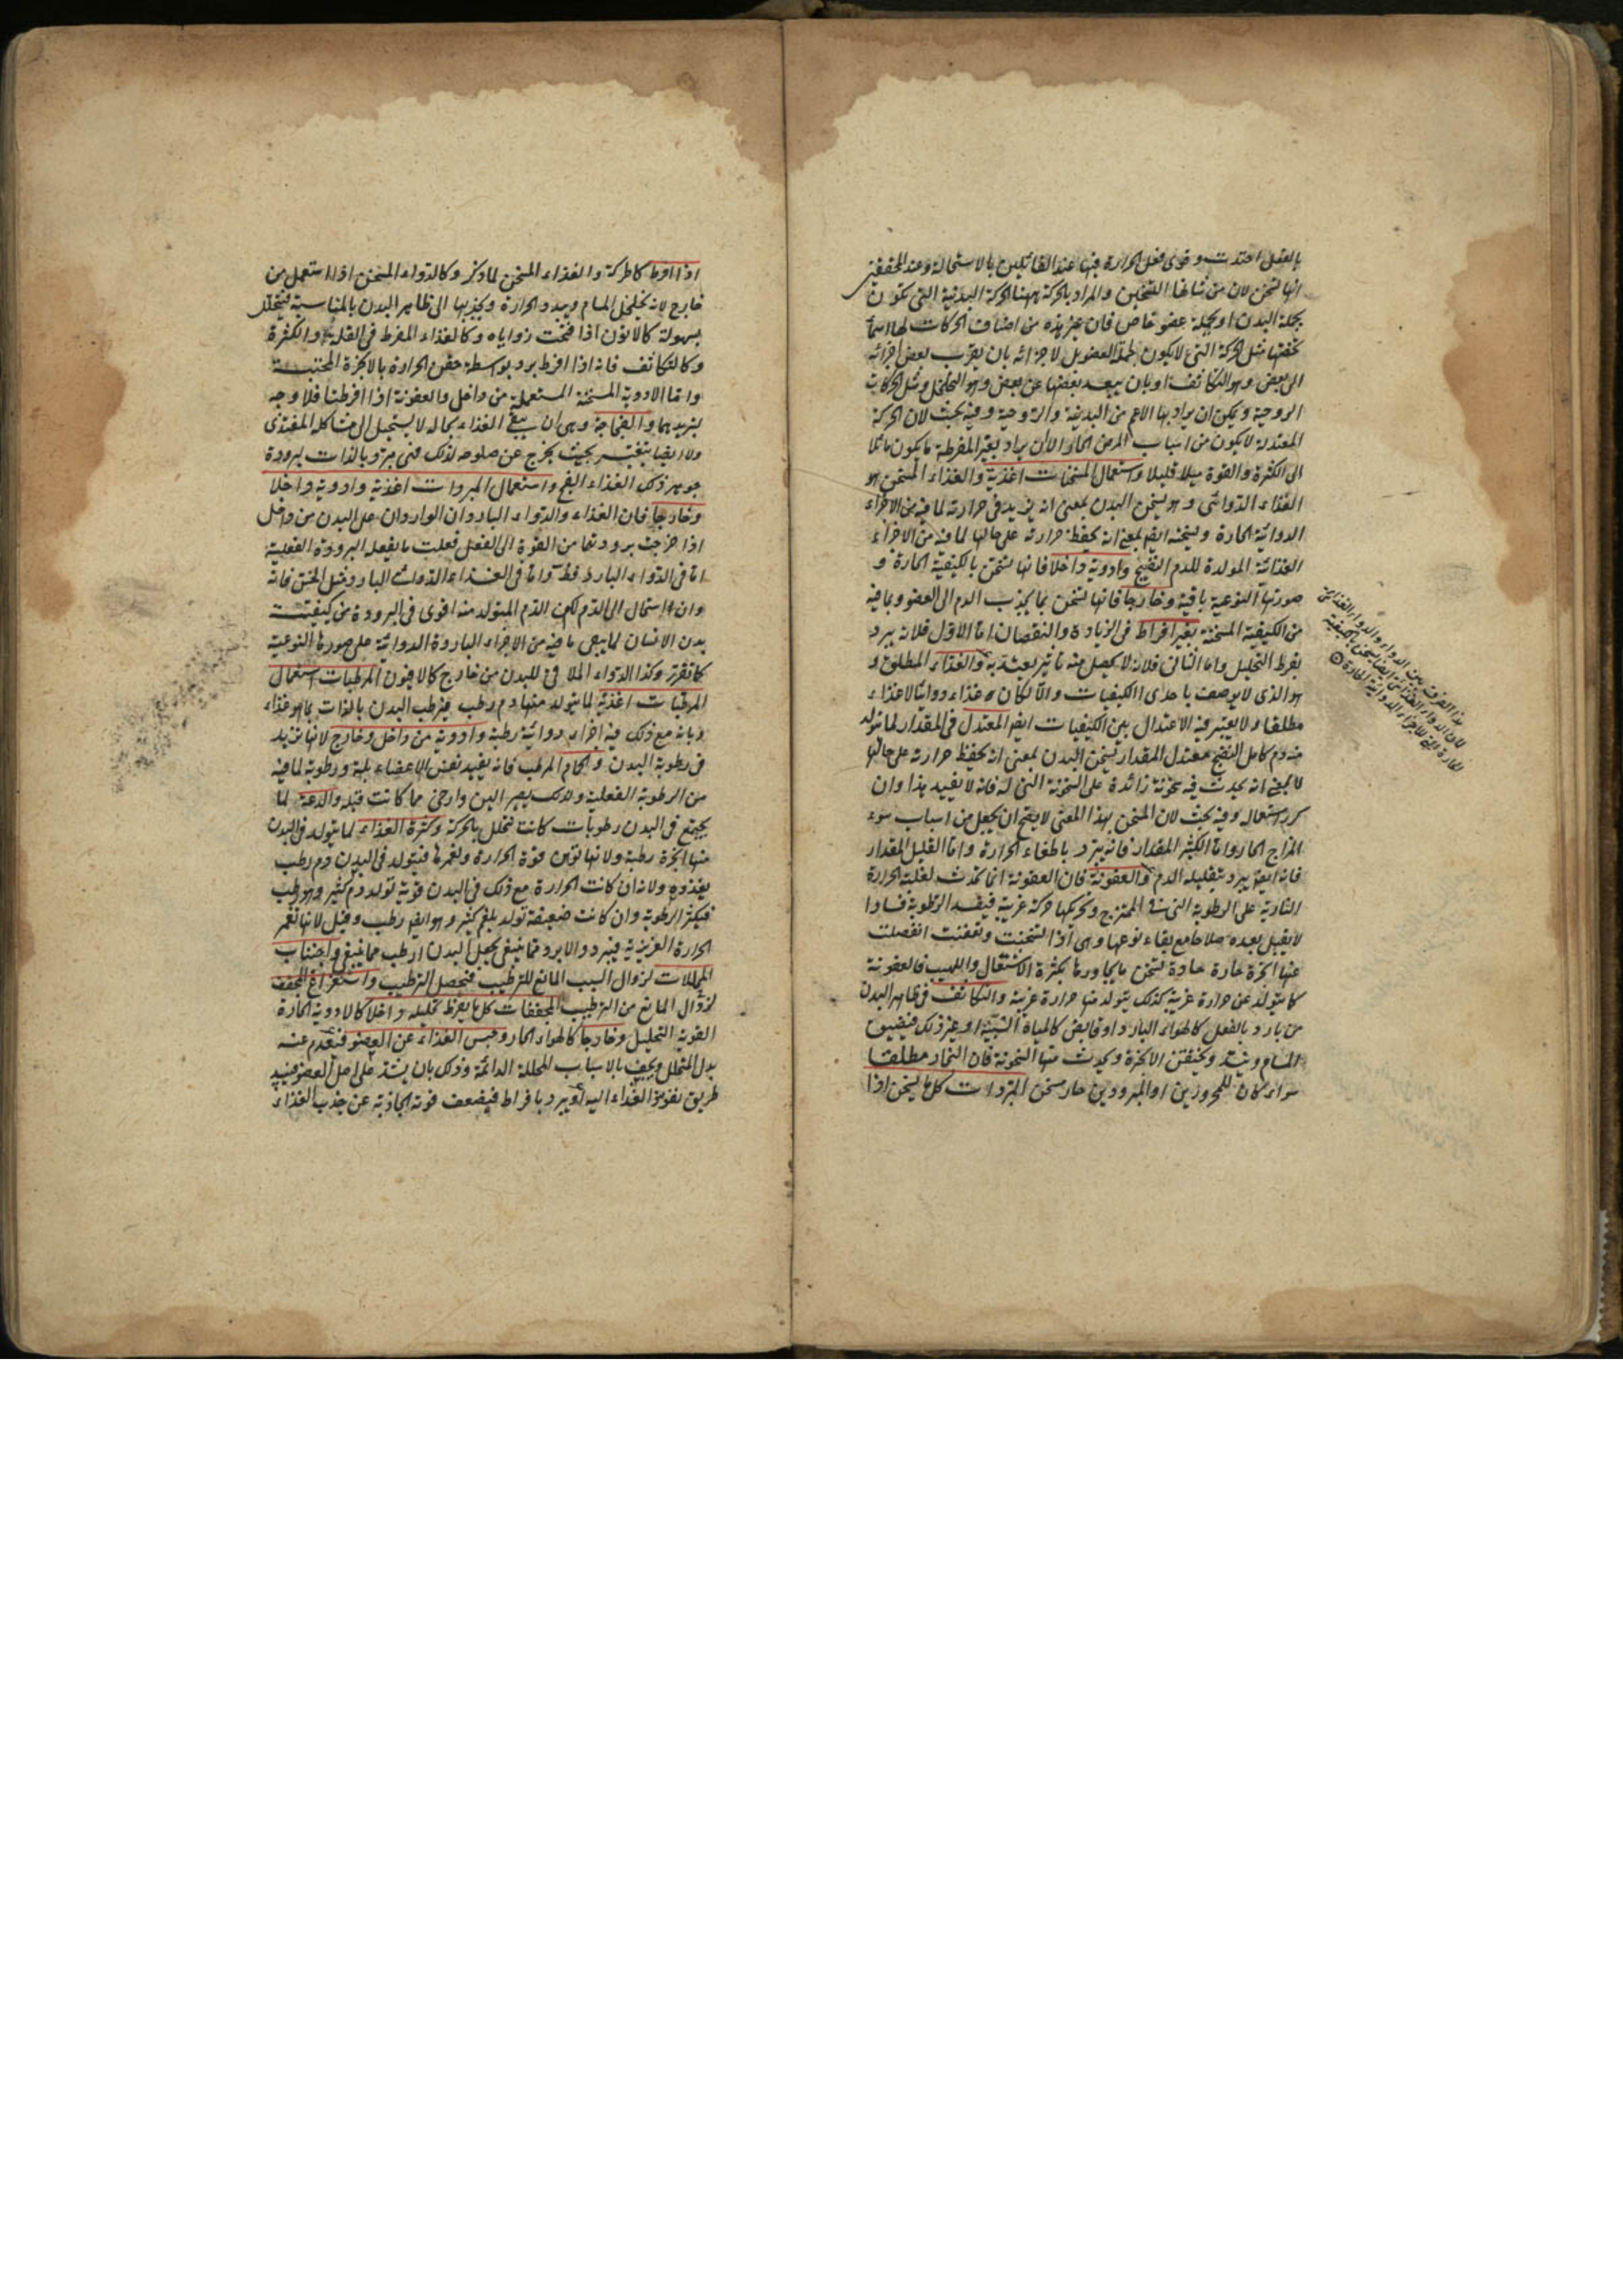 بالفعل احتدت وقوى فعل الحرارة فيها عند القائلين بالاستحالة وعند المحققين
انها تسخن لان من شانها التسخين والمراد بالحركة ههنا الحركة البدنية التى تكون
بجملة البدن او بجملة عضو خاص فان غير هذه من اصناف الحركات لها اسماء
تخصها مثل الحركة التى لا يكون لجملة العضو بل لاجزائه بان يقرب بعض اجزائه
الى بعض وهو التكاثف او بان يبعد بعضها عن بعض وهو التخلخل ومثل الحركات
الروحية ويمكن ان يراد بها الاعم من البدنية والروحية وفيه بحث لان الحركة
المعتدلة لا يكون من اسباب المرض الحار الا ان يراد بغير المفرطة ما يكون مائلا
الى الكثرة والقوة ميلا قليلا واستعمال المسخنات اغذية والغذاء المسخن هو
الغذاء الدوائى وهو يسخن البدن بمعنى انه يزيد فى حرارته لما فيه من الاجزاء
الدوائية الحارة ويسخنه ايضا بمعنى انه يحفظ حرارته على حالها لما فيه من الاجزاء
الغذائية المولدة للدم النضيج وادوية داخلا فانها تسخن بالكيفية الحارة و
صورتها النوعية باقية وخارجا فانها تسخن بما يجذب الدم الى العضو وبما فيه
من الكيفية المسخنة بغير افراط فى الزيادة والنقصان اما الاول فلانه يبرد
بفرط التحليل واما الثانى فلانه لا يحصل منه تاثير يعتد به والغذاء المطلق و
هو الذى لا يوصف باحدى الكيفيات والا لكان غذاء دوائيا لا غذاء
مطلقا ولا يعتبر فيه الاعتدال بين الكيفيات ايضا المعتدل فى المقدار لما تولد
منه دم كامل النضج معتدل المقدار تسخن البدن بمعنى انه يحفظ حرارته على حالها
لا بمعنى انه يحدث فيه سخونة زائدة على السخونة التى له فانه لا يفيد هذا وان
كرر استعماله وفيه بحث لان المسخن بهذا المعنى لا يصح ان يجعل من اسباب سوء
المزاج الحار واما الكثير المقدار فانه يبرد باطفاء الحرارة واما القليل المقدار
فانه ايضا يبرد بتقليله الدم والعفونة فان العفونة انما تحدث لغلبة الحرارة
النارية على الرطوبة التى فى الممتزج وتحريكها حركة غريبة فيفسد الرطوبة فسادا
لا يقبل بعده صلاحا مع بقاء نوعها وهى اذا تسخنت وتعفنت انفصلت
عنها ابخرة حارة حادة تسخن ما يجاورها بكثرة الاشتعال واللهيب فالعفونة
كما يتولد عن حرارة غريبة كذلك يتولد منها حرارة غريبة والتكاثف فى ظاهر البدن
من بارد بالفعل كالهواء البارد او قابض كالمياه الشبية او غير ذلك فيضيق
المسام وينسد ويختنق الابخرة ويحدث منها السخونة فان البخار مطلقا
سواء كان للمحرورين او المبرودين حار مسخن المبردات كل ما يسخن اذا
هذا الفرق بين الدواء والدواء الغذائى
لان الدواء الغذائى ايضا يسخن بالكيفية
الحارة التى للاجزاء الدوائية الحارة
اذا افرط كالحركة والغذاء المسخن لما ذكر وكالدواء المسخن اذا استعمل من
خارج لانه يخلخل المسام ويبدد الحرارة ويجذبها الى ظاهر البدن بالمناسبة فيتحلل
بسهولة كالاتون اذا فتحت زواياه وكالغذاء المفرط فى القلة والكثرة
وكالتكاثف فانه اذا افرط برد بواسطة حقن الحرارة بالابخرة المحتبسة
واما الادوية المسخنة المستعملة من داخل والعفونة اذا افرطتا فلا وجه
لتبريدهما والفجاجة وهى ان يبقى الغذاء بحاله لا يستحيل الى مشاكلة المغتذى
ولا ايضا يتغير بحيث يخرج عن صلوحه لذلك فهى مبردة بالذات لبرودة
جوهر ذلك الغذاء الفج واستعمال المبردات اغذية وادوية داخلا
وخارجا فان الغذاء والدواء الباردان الواردان على البدن من داخل
اذا خرجت برودتهما من القوة الى الفعل فعلت ما يفعله البرودة الفعلية
اما فى الدواء البارد فظ واما فى الغذاء الدوائى البارد مثل الخس فانه
وان استحال الى الدم لكن الدم المتولد منه اقوى فى البرودة من كيفية
بدن الانسان لما يبقى ما فيه من الاجزاء الباردة الدوائية على صورها النوعية
كما تقرر وكذا الدواء الملاقى للبدن من خارج كالافيون المرطبات استعمال
المرطبات اغذية لما يتولد منها دم رطب يرطب البدن بالذات بما هو غذاء
وبانه مع ذلك فيه اجزاء دوائية رطبة وادوية من داخل وخارج لانها تزيد
فى رطوبة البدن والحمام المرطب فانه يفيد نفس الاعضاء بلة ورطوبة لما فيه
من الرطوبة الفعلية ولذلك يصير الين وارخى مما كانت قبله والدعة لما
يجتمع فى البدن رطوبات كانت تتحلل بالحركة وكثرة الغذاء لما يتولد فى البدن
منها ابخرة رطبة ولانها توهن قوة الحرارة وتغمرها فيتولد فى البدن دم رطب
يغذوه ولانه ان كانت الحرارة مع ذلك فى البدن قوية تولد دم كثير وهو رطب
فيكثر الرطوبة وان كانت ضعيفة تولد بلغم كثير وهو ايضا رطب وقيل لانها تغمر
الحرارة الغريزية فيبرد والابرد مما ينبغى يجعل البدن ارطب مما ينبغى واجتناب
المحللات لزوال السبب المانع للترطيب فيحصل الترطيب واستفراغ المجفف
لزوال المانع من الترطيب المجففات كل ما يفرط تحليله داخلا كالادوية الحارة
القوية التحليل وخارجا كالهواء الحار وحبس الغذاء عن العضو فيعدم عنه
بدل المتحلل ويجف بالاسباب المحللة الدائمة وذلك بان يشد على اصل العضو فينسد
طريق نفوذ الغذاء اليه او يبرد بافراط فيضعف قوته الجاذبة عن جذب الغذاء